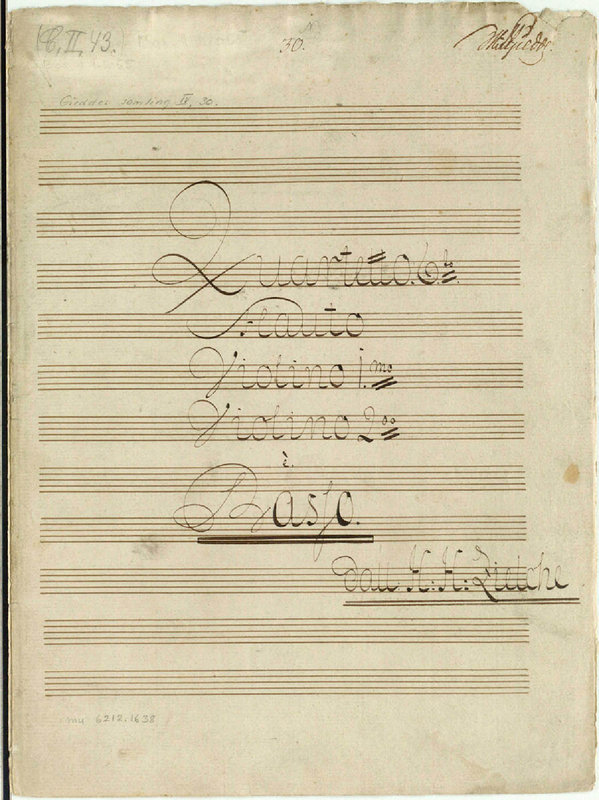 (C, II, 43.)
30.
Giedde's samling IV, 30.
Quartetto. 6to.
Flauto
Violino 1.mo
Violino 2do
è.
Basso.
dall H: H: Zielche
mu 6212.1638